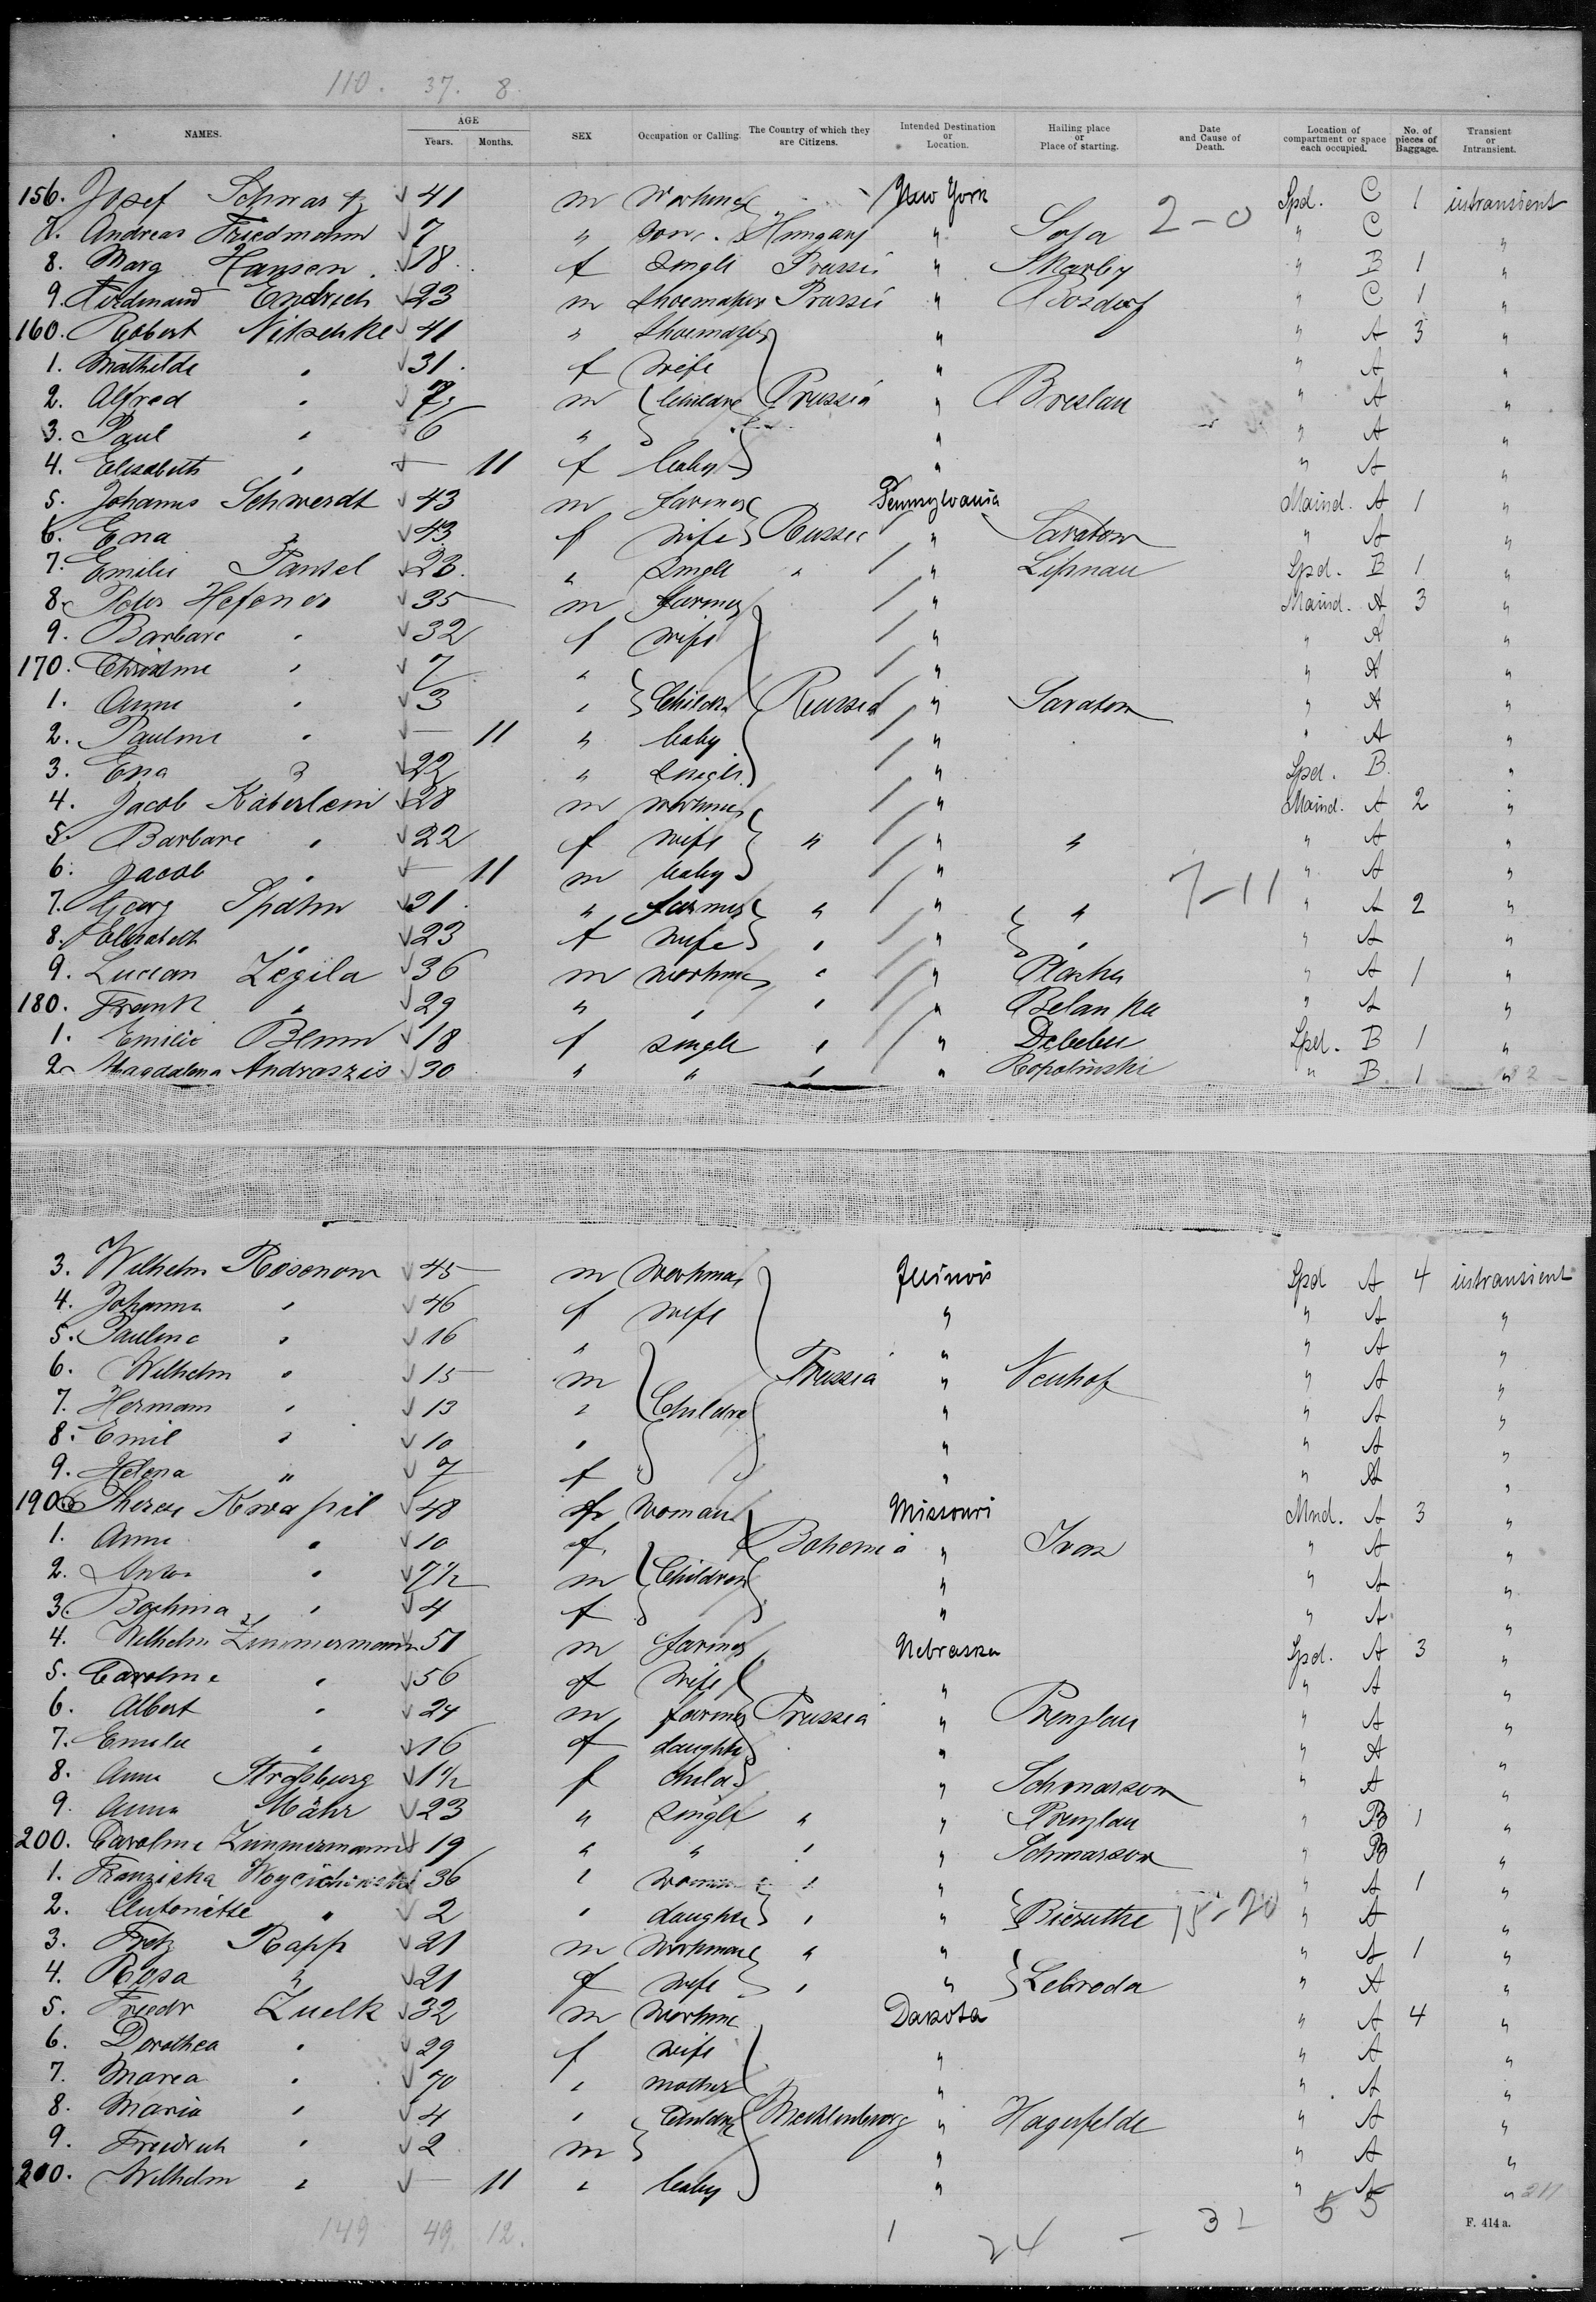 110. 37. 8.
NAMES. AGE Years. Months. SEX Occupation or Calling. The Country of which they are Citizens. Intended Destination or Location. Hailing place or Place of starting. Date and Cause of Death. Location of compartment or space each occupied. No. of pieces of Baggage. Transient or Intransient.
156. Josef Schwartz 41 m workman New York Spd. C 1 intransient
7. Andreas Friedmann 7 " son Hungary " Soja 2-0 " C "
8. Marg Hansen 18 f Single Prussia " Skarby " B 1 "
9. Ferdinand Endrich 23 m Shoemaker Prussia " Bosdorf " C 1 "
160. Robert Nitschke 41 " Shoemaker " " A 3 "
1. Mathilde " 31 f wife " " A "
2. Alfred " 7 m Children Prussia " Breslau " A "
3. Paul " 6 " " " A "
4. Elisabeth " — 11 f baby " " A "
5. Johannes Schwerdt 43 m farmer Pennsylvania Maind. A 1 "
6. Eva " 43 f wife Russia " Saratow " A "
7. Emilie Pansel 23 " Single " " Lipnau Spd. B 1 "
8. Peter Hefener 35 m farmer " Maind. A 3 "
9. Barbara " 32 f wife " " A "
170. Christine " 7 " " " A "
1. Anna " 3 " Children Russia " Saratow " A "
2. Pauline " — 11 " baby " " A "
3. Eva " 22 " Single " Spd. B "
4. Jacob Käberlein 28 m workman " Maind. A 2 "
5. Barbara " 22 f wife " " " " A "
6. Jacob " — 11 m baby " 7-11 " A "
7. Georg Spahn 21 " farmer " " " " A 2 "
8. Elisabeth " 23 f wife " " " " A "
9. Lucian Zegila 36 m workman " " Plaska " A 1 "
180. Frank " 29 " " " " Belanka " A "
1. Emilie Blum 18 f single " " Debeleu Spd. B 1 "
2. Magdalena Andraszis 30 " " " " Ropolinski " B 1 " 182
3. Wilhelm Rosenow 45 m Workman Illinois Spd A 4 intransient
4. Johanna " 46 f wife " " A "
5. Pauline " 16 " " " A "
6. Wilhelm " 15 m Prussia " Neuhof " A "
7. Hermann " 13 " Children " " A "
8. Emil " 10 " " " A "
9. Helena " 7 f " " A "
190. Therese Kwapil 48 f woman Missouri Mnd. A 3 "
1. Anna " 10 f Bohemia " Ivan " A "
2. Anton " 7½ m Children " " A "
3. " 4 f " " A "
4. Wilhelm Zimmermann 51 m farmer Nebraska Spd. A 3 "
5. Caroline " 56 f Wife " " A "
6. Albert " 24 m farmer Prussia " Prenzlau " A "
7. Emilie " 16 f daughter " " A "
8. Anna Straßburg 1½ f child " Schmarsow " A "
9. Anna Mähr 23 " Single " " Prenzlau " B 1 "
200. Caroline Zimmermann 19 " " " " Schmarsow " B "
1. Franziska 36 " woman " " " A 1 "
2. Antonette " 2 " daughter " " Biesuthe 15-20 " A "
3. Fritz Rapp 21 m Workman " " " A 1 "
4. Rosa " 21 f wife " " Lebroda " A "
5. Friedr Zuelk 32 m Workman Dakota " A 4 "
6. Dorothea " 29 f wife " " A "
7. Maria " 70 " mother " " A "
8. Maria " 4 " Children Mecklenburg " Hagerfelde " A "
9. Friedrich " 2 m " " A "
200. Wilhelm " — 11 " baby " " A " 211
149 49. 12. 1 24 — 32 55
F. 414 a.